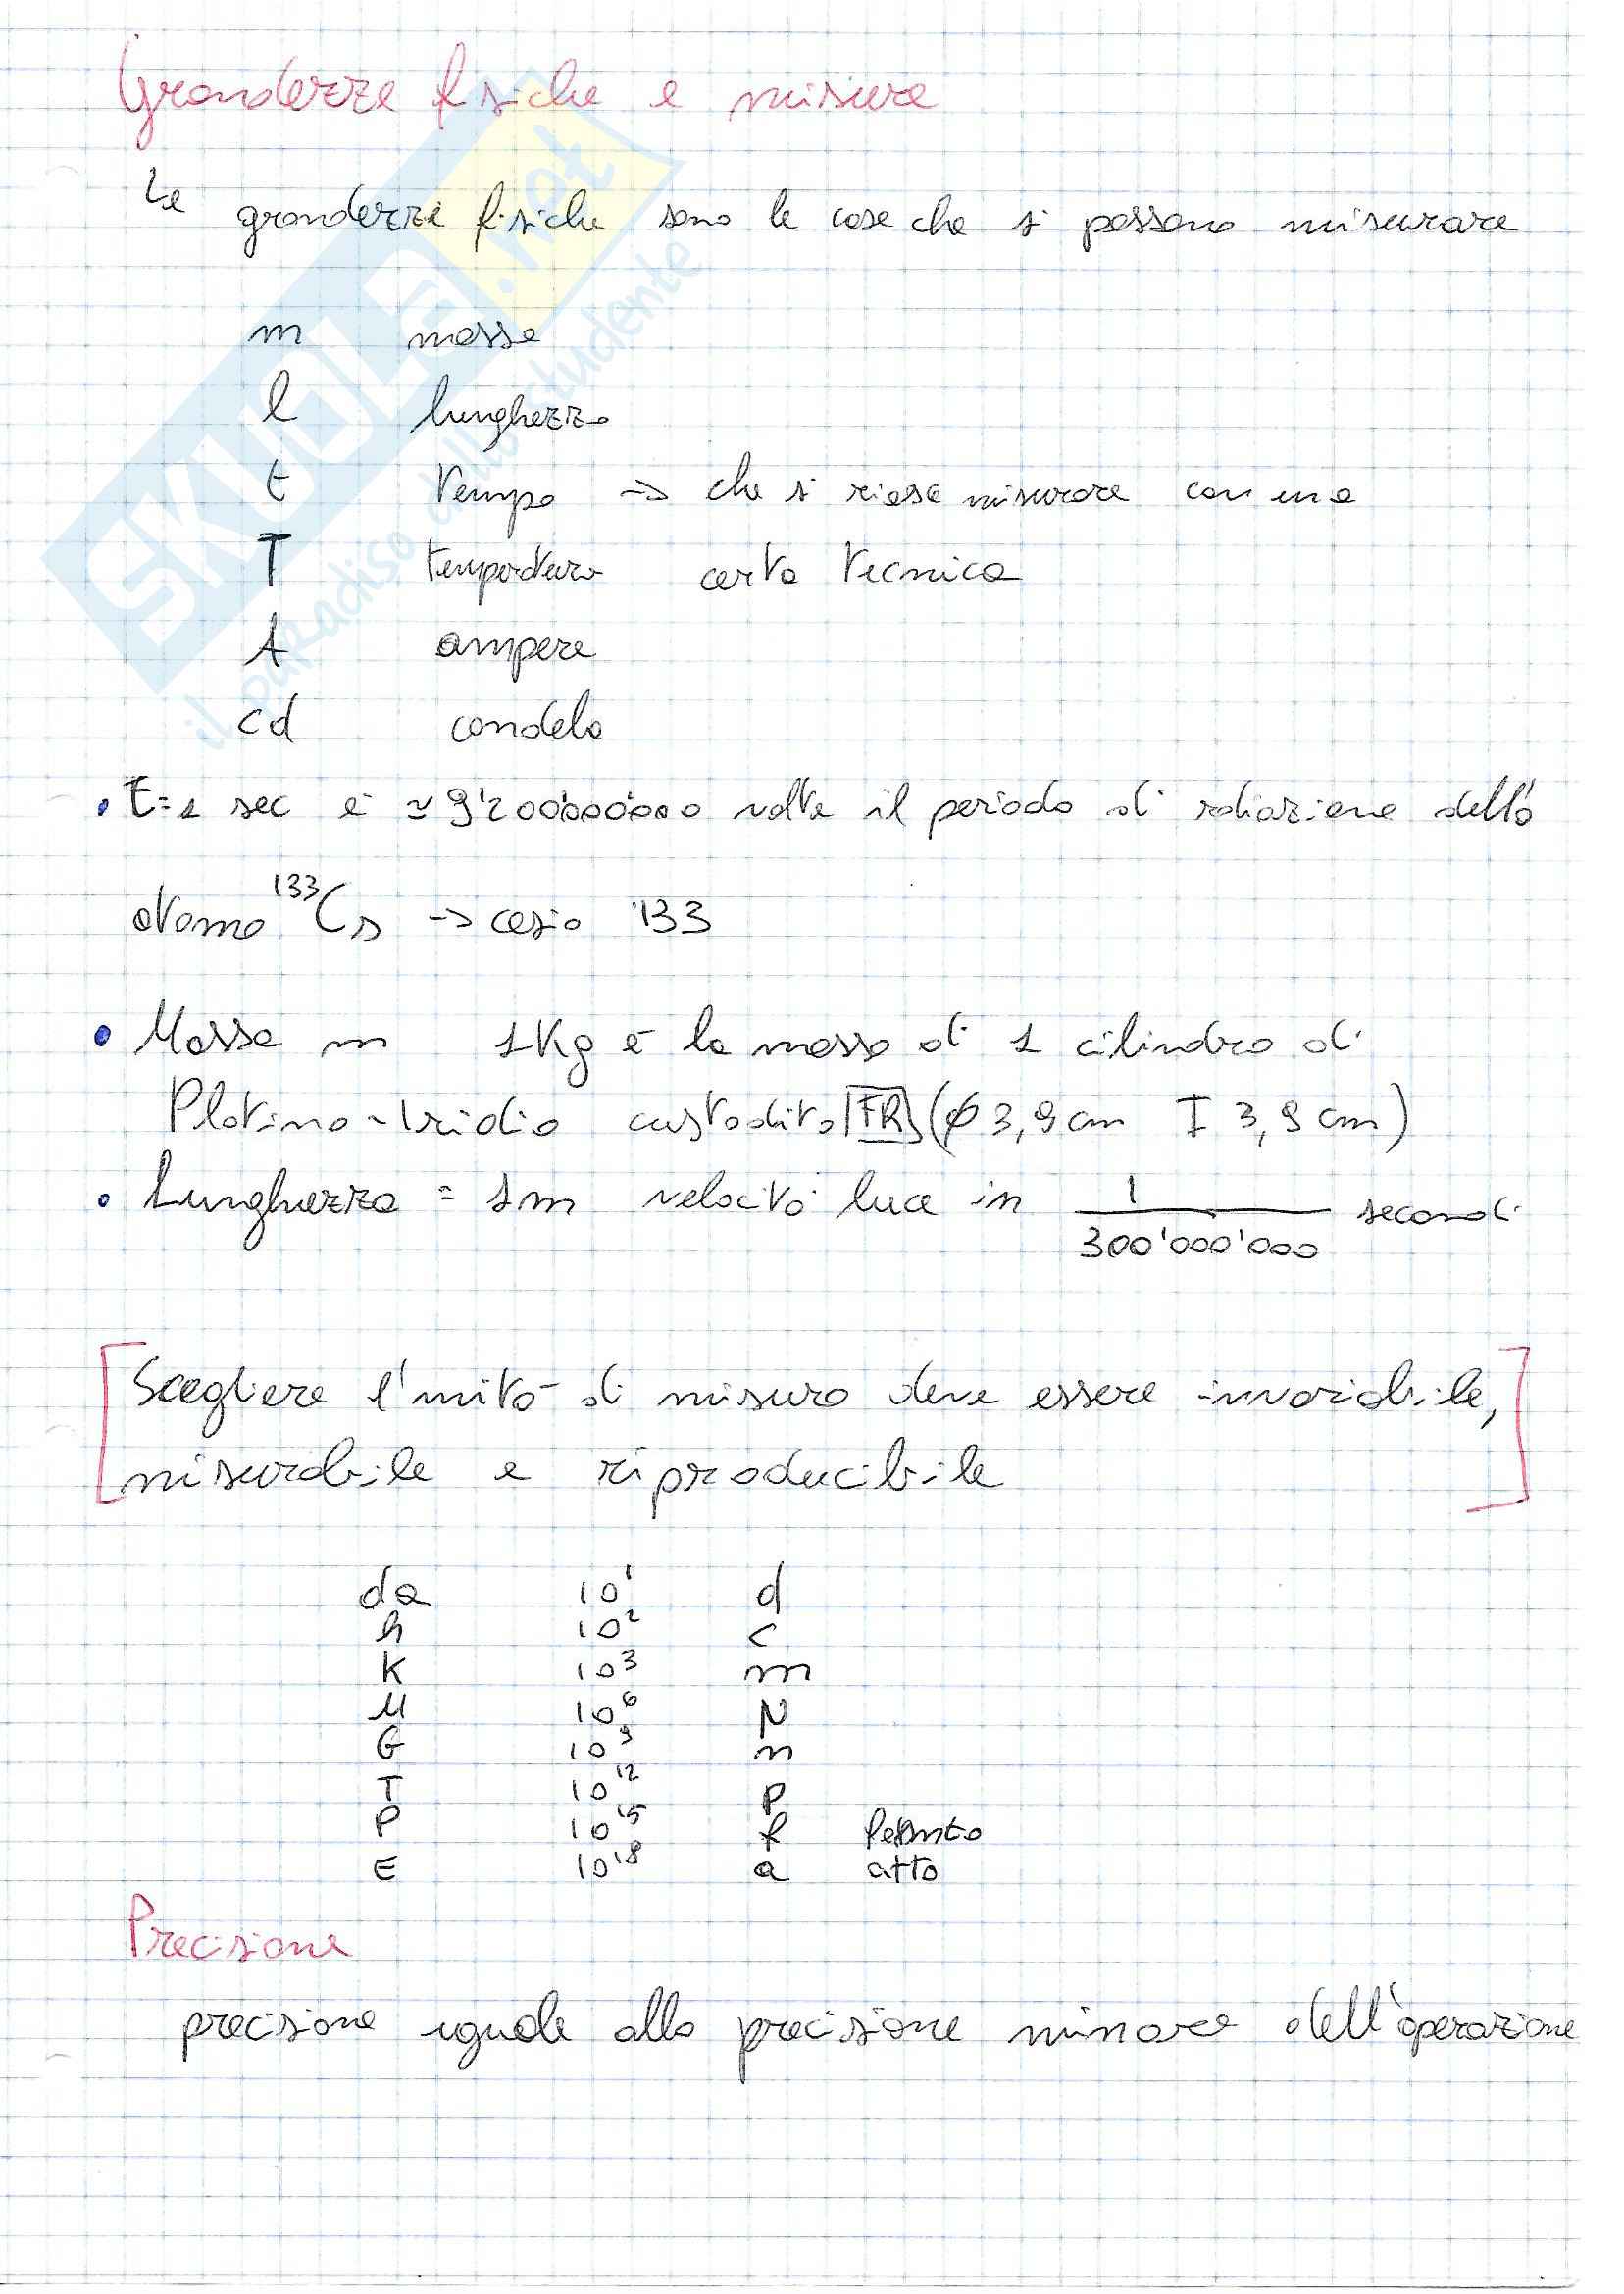 Grandezze fisiche e misure
Le grandezze fisiche sono le cose che si possono misurare
m massa
l lunghezza
t Tempo → che si riesce misurare con una
T temperatura certa tecnica
A ampere
cd candela
• t=1 sec è ≃ 9'200'000'000 volte il periodo di radiazione dello
atomo ¹³³Cs → cesio 133
• Massa m 1Kg è la massa di 1 cilindro di
Platino-Iridio custodito FR (ø 3,9cm I 3,9cm)
• Lunghezza = 1m velocità luce in 1/300'000'000 secondi
[Scegliere l'unità di misura deve essere invariabile,
misurabile e riproducibile]
da 10¹ d
h 10² c
K 10³ m
M 10⁶ μ
G 10⁹ n
T 10¹² p
P 10¹⁵ f
E 10¹⁸ a atto
Precisione
precisione uguale alla precisione minore dell'operazione
SKUOLA.net
il paradiso dello studente